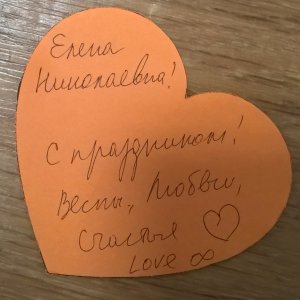 Елена
Николаевна!
С праздником!
Весны, Любви,
Счастья ♡
Love ∞